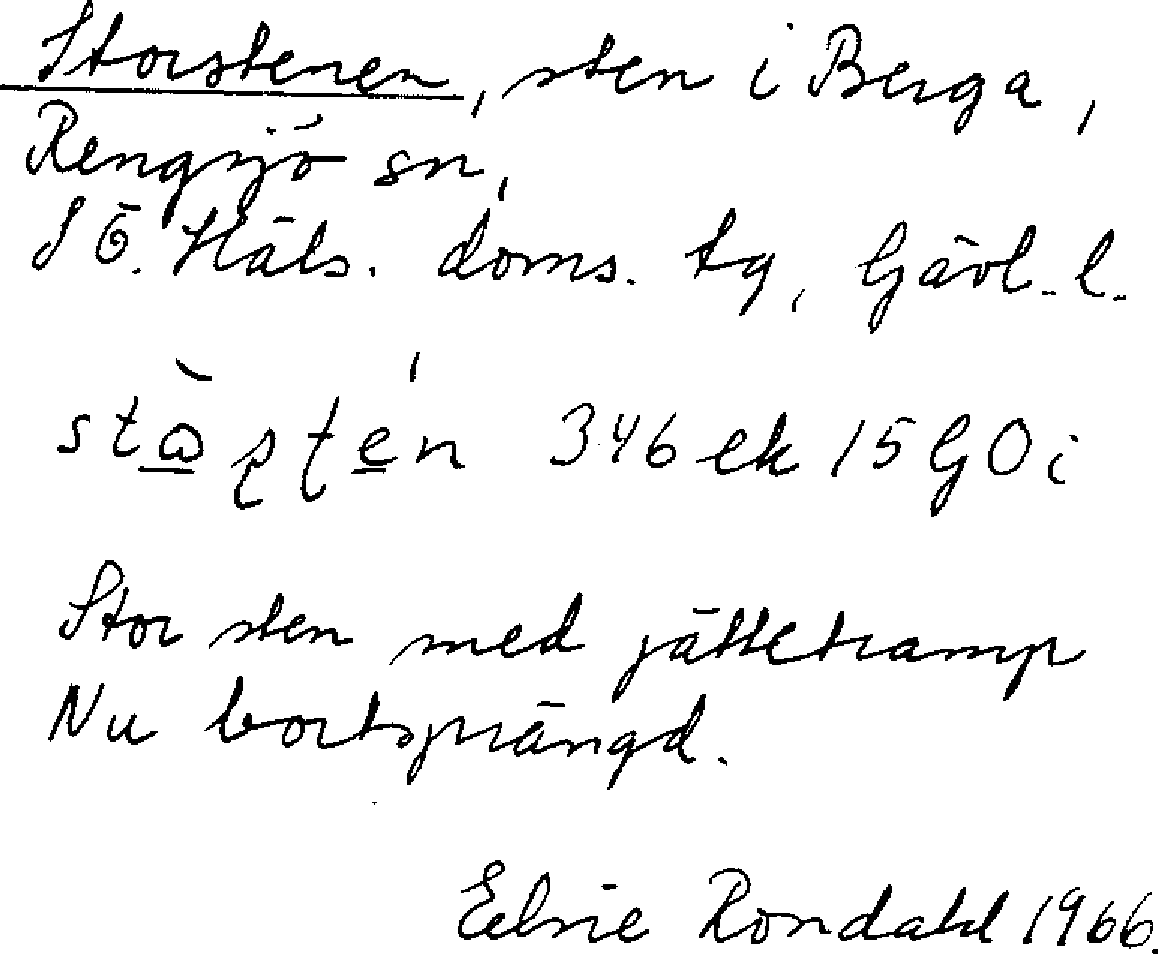 Storstenen, sten i Berga,
Rengsjö sn,
S Ö. Häls. doms. tg, Gävl. l.
346 ek 15 GO i
Stor sten med jättetramp
Nu bortsprängd.
Elsie Rondahl 1966.